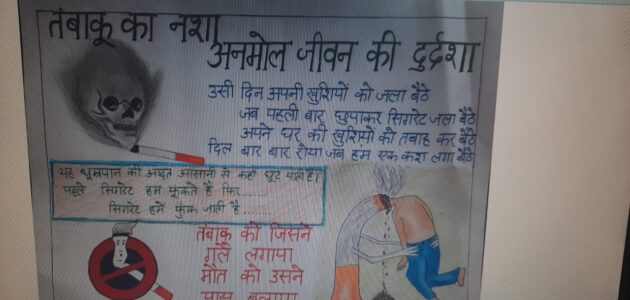 तंबाकू का नशा
अनमोल जीवन की दुर्दशा
उसी दिन अपनी खुशियों को जला बैठे
जब पहली बार छुपाकर सिगरेट जला बैठे
अपने घर की खुशियों को तबाह कर बैठे
दिल बार बार रोया जब हम एक कश लगा बैठे
यह धूम्रपान की आदत आसानी से कहाँ छूट पाती है।
पहले सिगरेट हम फूंकते है फिर......
सिगरेट हमें फुंक जाती है.....
तंबाकू को जिसने
गले लगाया
मौत को उसने
पास बुलाया